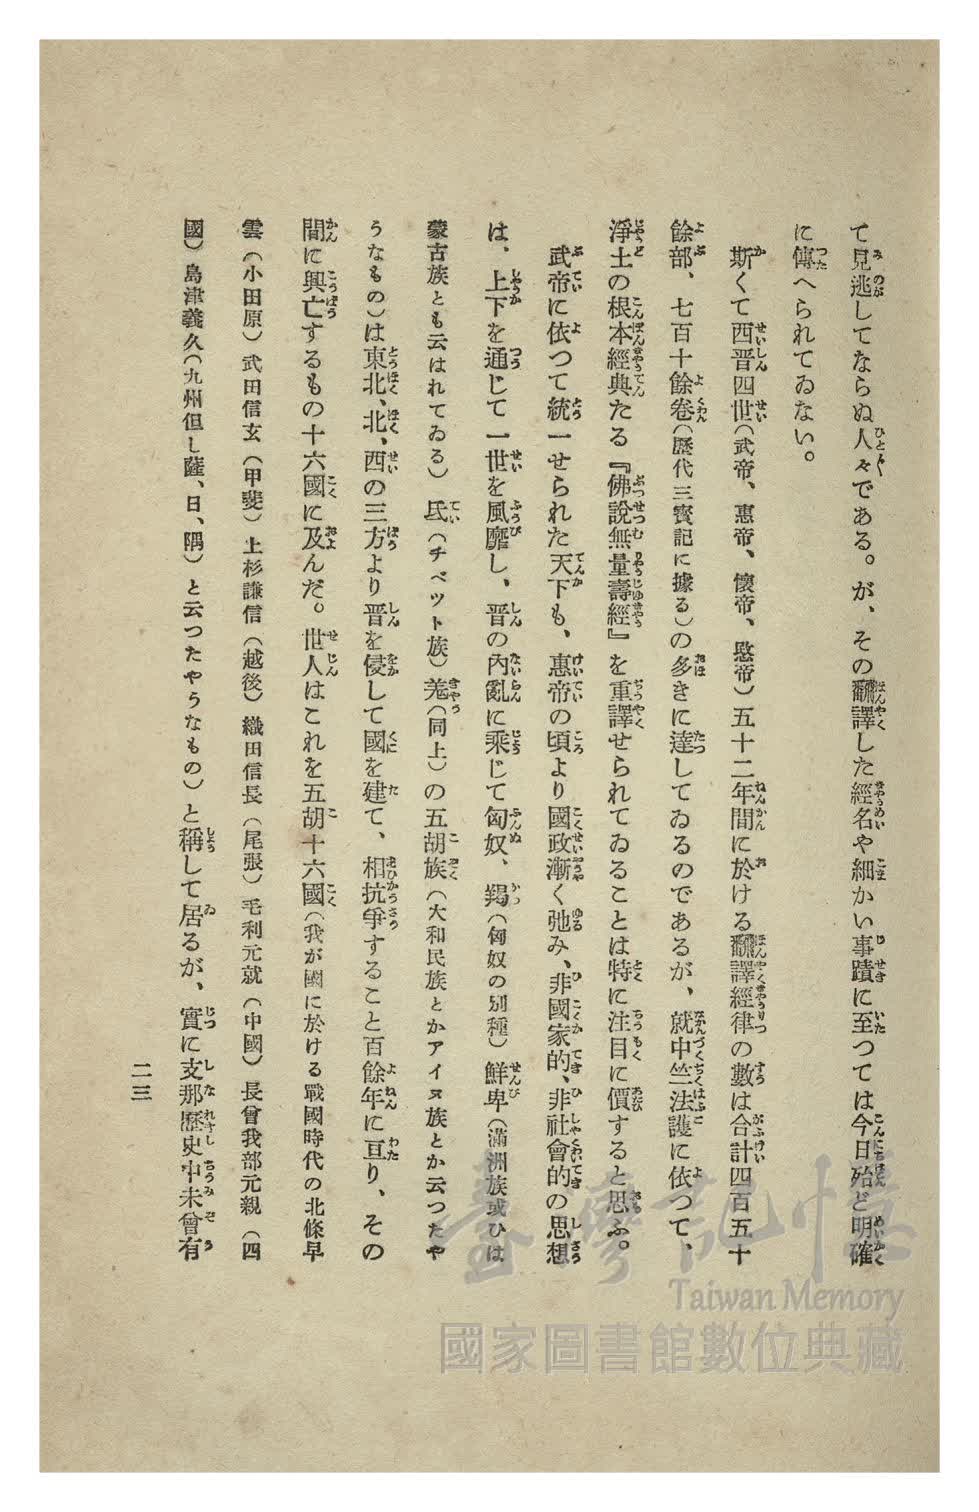 て見逃してならぬ人々である。が、その飜譯した經名や細かい事蹟に至つては今日殆ど明確
に傳へられてゐない。
斯くて西晋四世(武帝、惠帝、懷帝、愍帝)五十二年間に於ける飜譯經律の數は合計四百五十
餘部、七百十餘卷(歷代三寳記に據る)の多きに達してゐるのであるが、就中竺法護に依つて、
淨土の根本經典たる『佛說無量壽經』を重譯せられてゐることは特に注目に價すると思ふ。
武帝に依つて統一せられた天下も、惠帝の頃より國政漸く弛み、非國家的、非社會的の思想
は、上下を通じて一世を風靡し、晋の內亂に乘じて匈奴、羯(匈奴の別種)鮮卑(滿洲族或ひは
蒙古族とも云はれてゐる)氐(チベツト族)羌(同上)の五胡族(大和民族とかアイヌ族とか云つたや
うなもの)は東北、北、西の三方より晋を侵して國を建て、相抗爭すること百餘年に亘り、その
間に興亡するもの十六國に及んだ。世人はこれを五胡十六國(我が國に於ける戰國時代の北條早
雲(小田原)武田信玄(甲斐)上杉謙信(越後)織田信長(尾張)毛利元就(中國)長曾我部元親(四
國)島津義久(九州但し薩、日、隅)と云つたやうなもの)と稱して居るが、實に支那歷史中未曾有
二三
臺灣記憶
Taiwan Memory
國家圖書館數位典藏